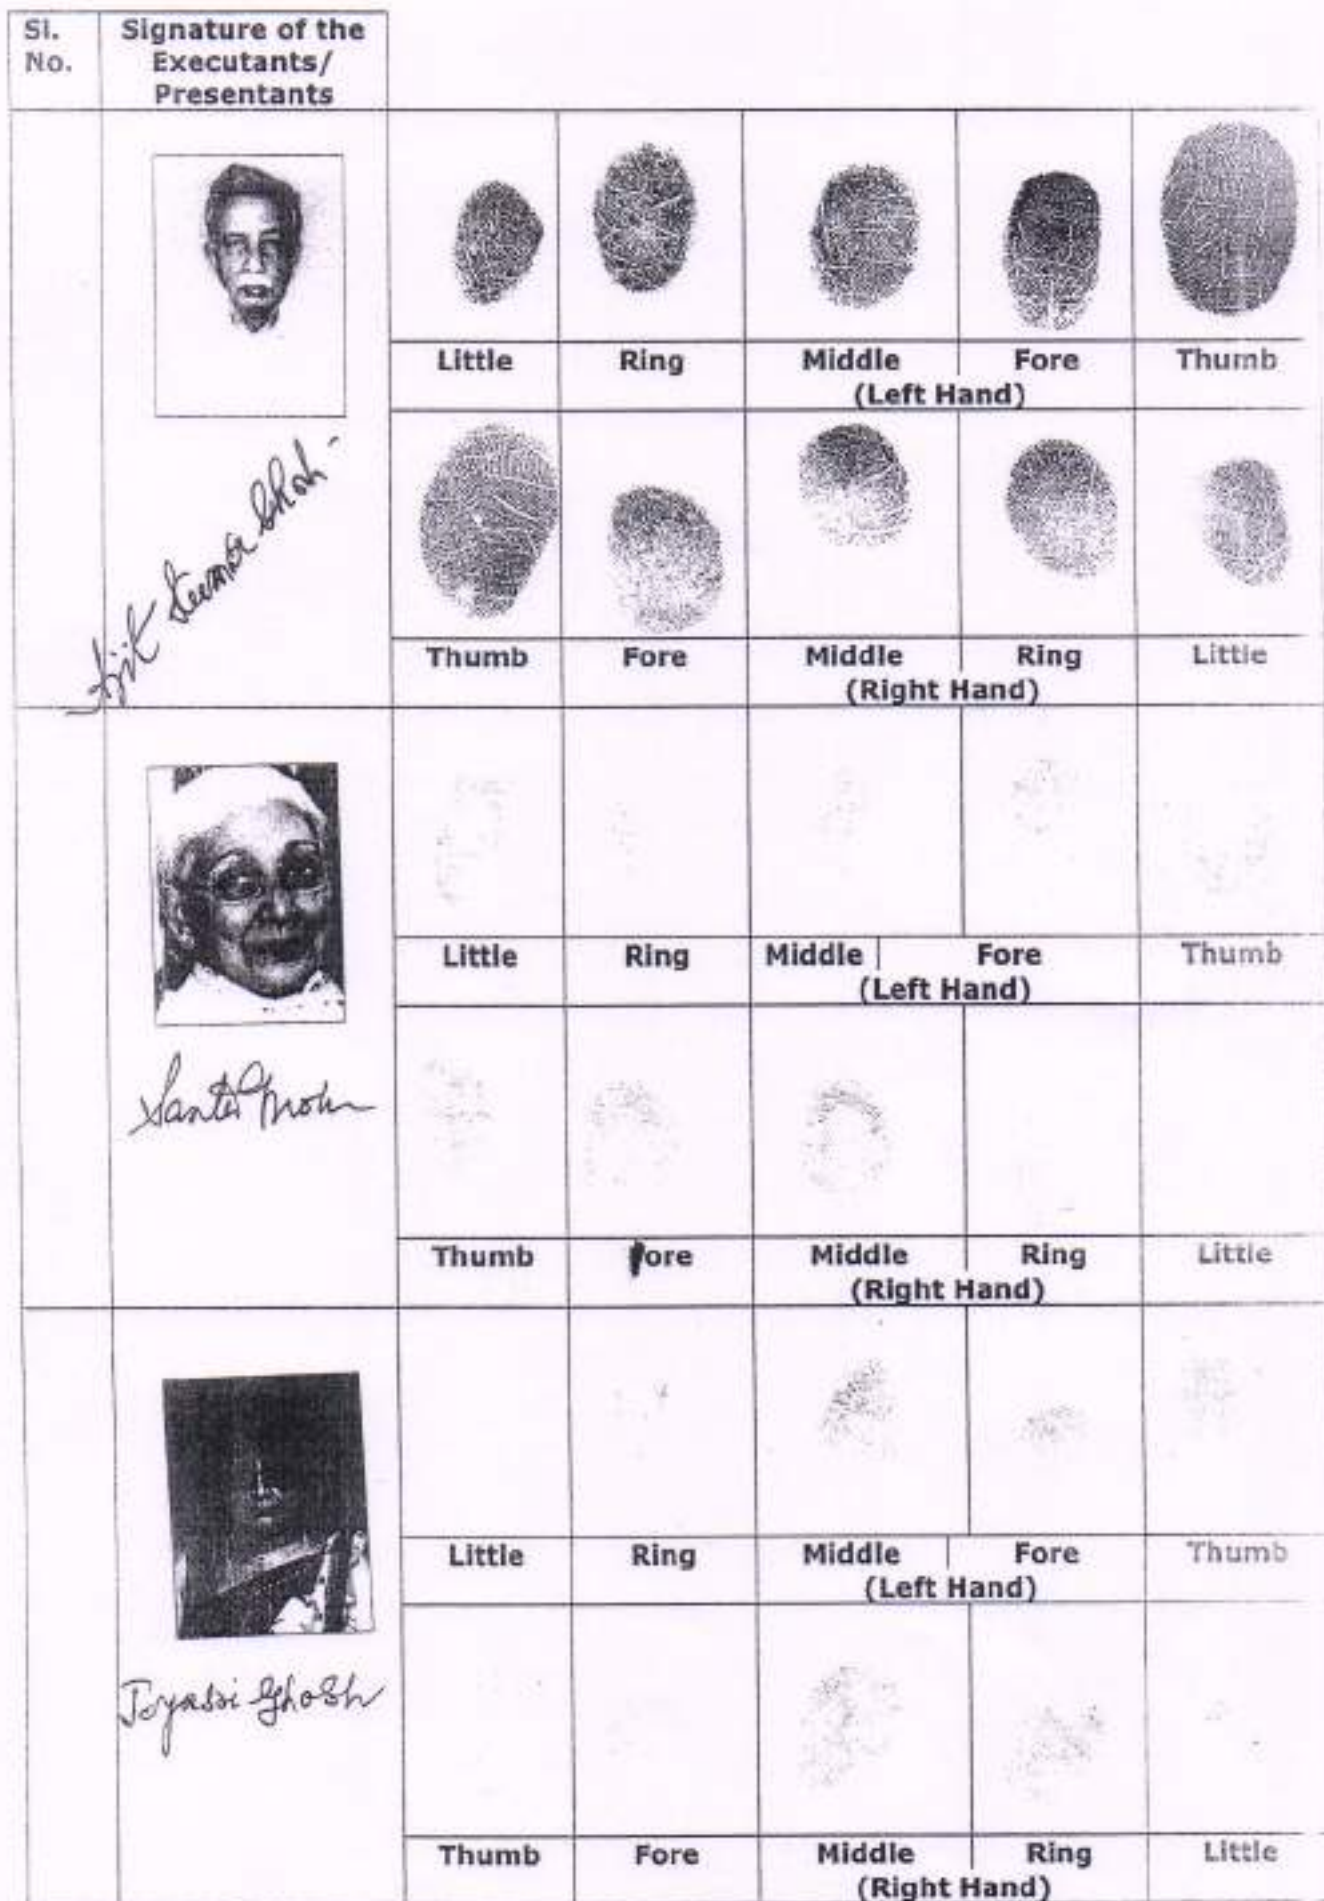 Sl. No.
Signature of the Executants/ Presentants
Little Ring Middle Fore Thumb
(Left Hand)
Ajit Kumar Ghosh
Thumb Fore Middle Ring Little
(Right Hand)
Little Ring Middle Fore Thumb
(Left Hand)
Thumb Fore Middle Ring Little
(Right Hand)
Little Ring Middle Fore Thumb
(Left Hand)
Ghosh
Thumb Fore Middle Ring Little
(Right Hand)